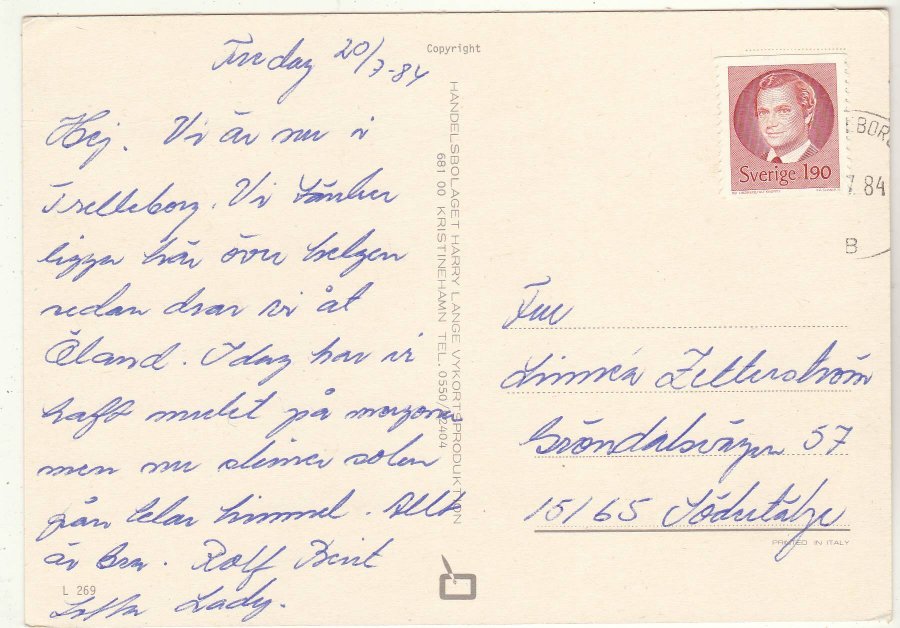 Fredag 20/7-84
Hej. Vi är nu i
Trelleborg. Vi tänker
ligga här över helgen
sedan drar vi åt
Öland. Idag har vi
haft mulet på morgonen
men nu skiner solen
från klar himmel. Allt
är bra. Rolf Berit
Lotta Lady.
L 269
Copyright
HANDELSBOLAGET HARRY LANGE VYKORTSPRODUKTION
681 00 KRISTINEHAMN TEL. 0550/12404
Sverige 190
BORG
7 84
B
Fru
Linnéa Zetterström
Gröndalsvägen 57
15165 Södertälje
PRINTED IN ITALY